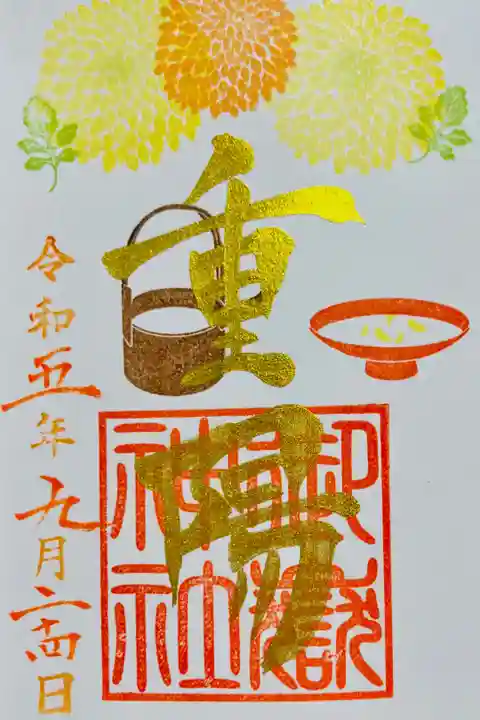 重陽
神社
令和五年九月二十四日